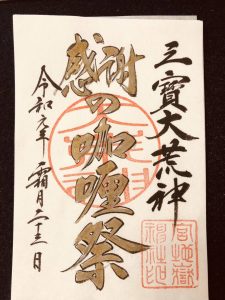 三寶大荒神
感謝の咖喱祭
令和元年 霜月二十三日
宮地嶽神社印